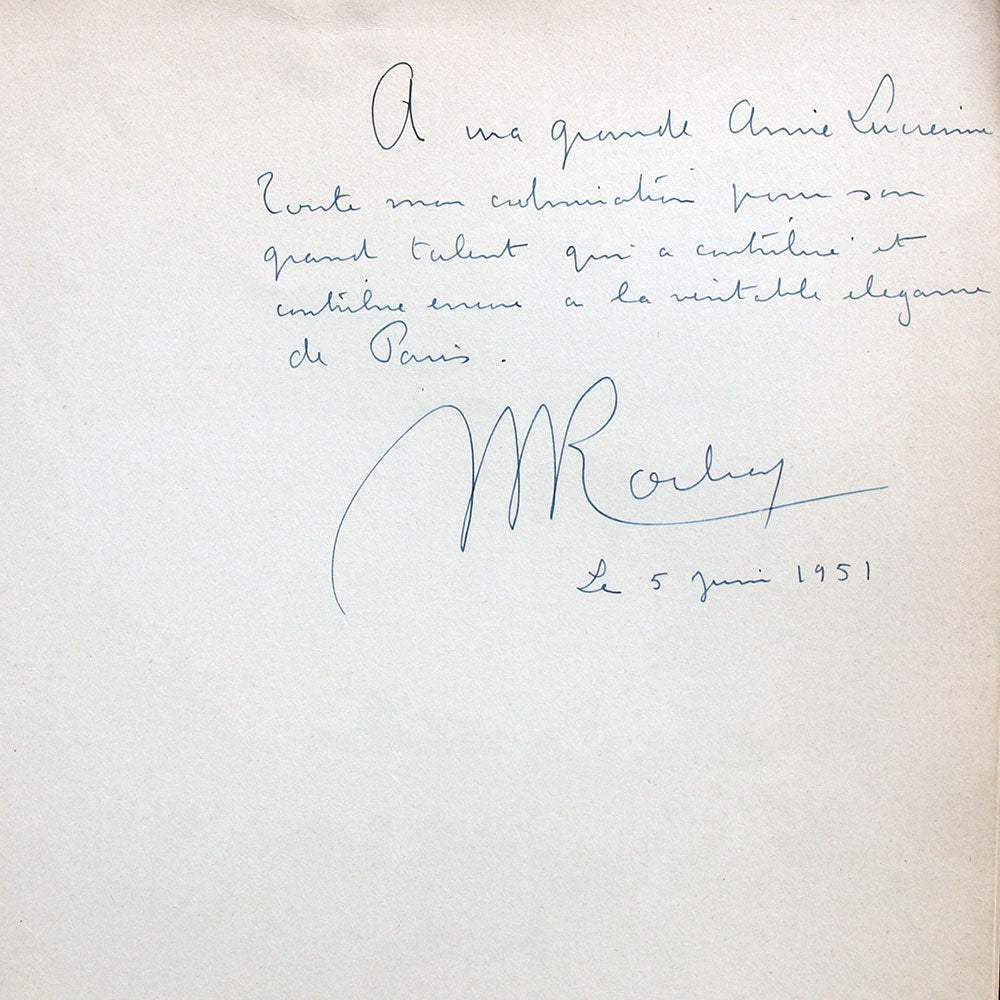 A ma grande Amie Lucienne
Toute mon admiration pour son
grand talent qui a contribué et
contribue encore a la veritable elegance
de Paris.
MRochas
Le 5 juin 1951